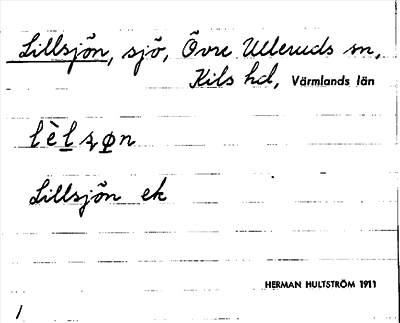 Lillsjön, sjö, Övre Ulleruds sn,
Kils hd, Värmlands län
Lillsjön ek
HERMAN HULTSTRÖM 1911
1